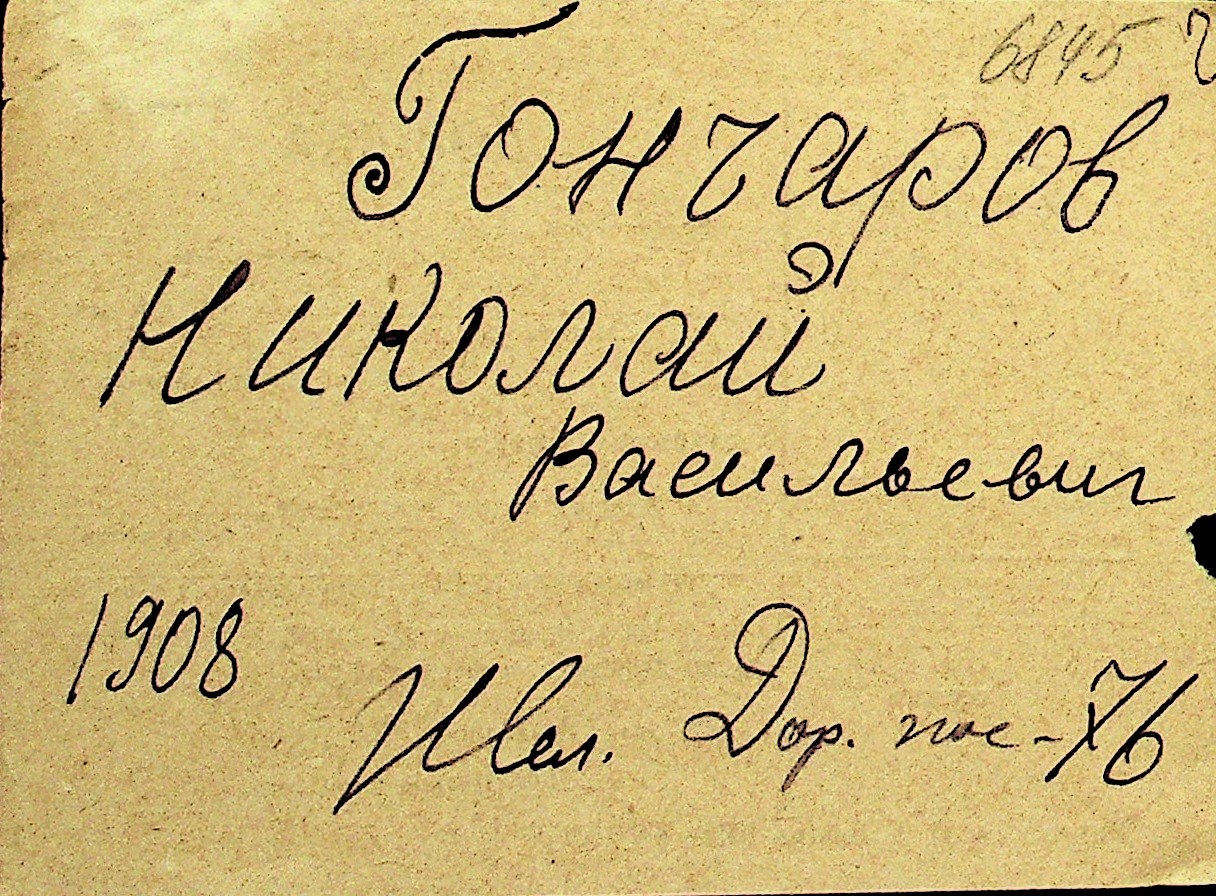 6845
Гончаров
Николай
Васильевич
1908
Дор. пос-76